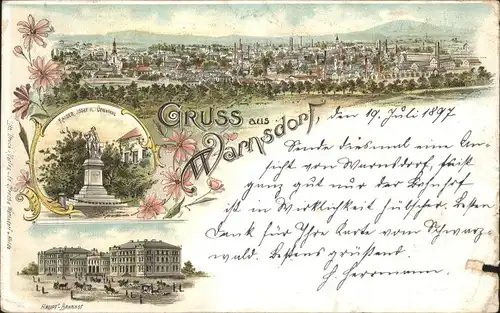 GRUSS aus
Warnsdorf,
KAISER JOSEF II. DENKMAL
HAUPT-BAHNHOF
den 19. Juli 1897
Sende diesmal eine An-
sicht von Warnsdorf,
ganz gut nur der Bahnhof
ist in Wirklichkeit hübscher. Besten
Dank für Ihre Karte vom Schwarz-
wald. Bestens grüßend
H. Herrmann.